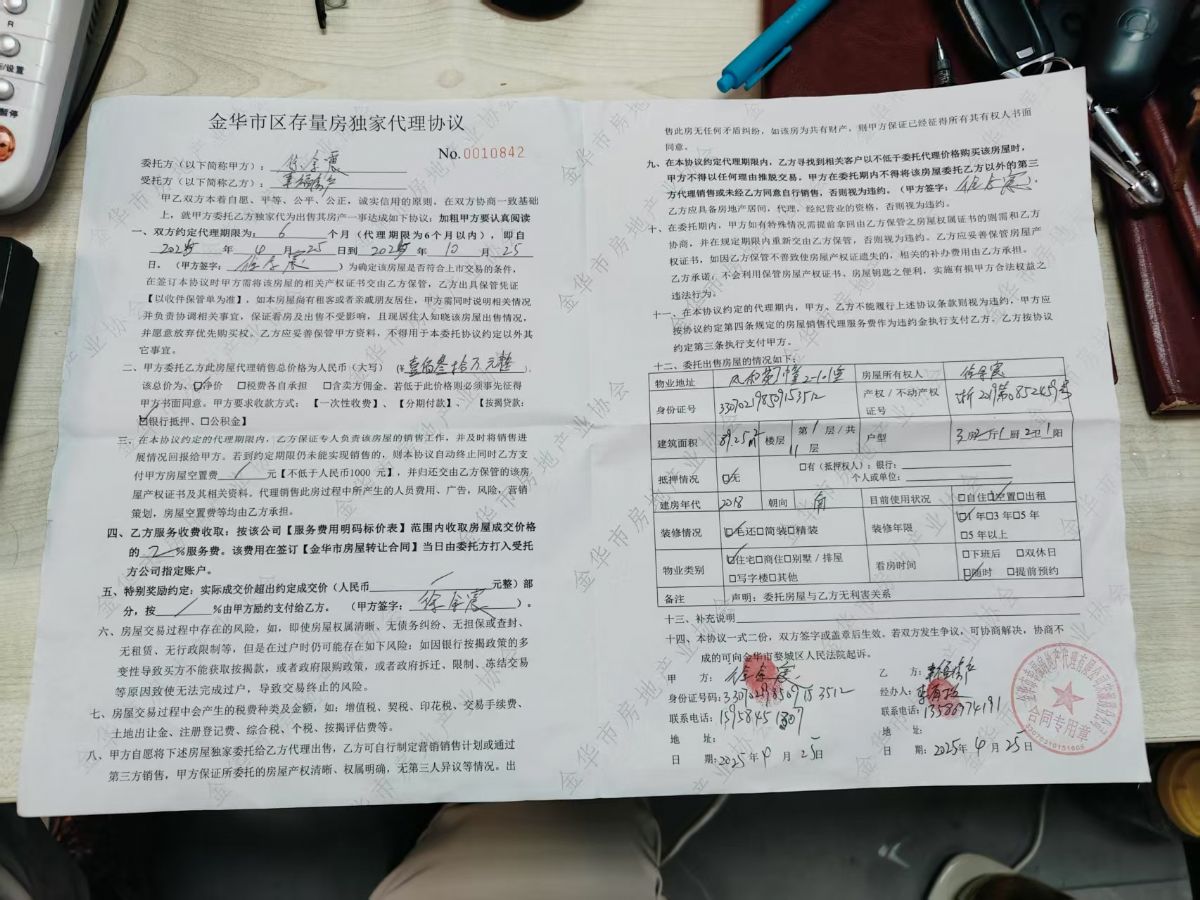 金华市区存量房独家代理协议
No.0010842
委托方（以下简称甲方）：
受托方（以下简称乙方）：
甲乙双方本着自愿、平等、公平、公正，诚实信用的原则，在双方协商一致基础
上，就甲方委托乙方独家代为出售其房产一事达成如下协议：加粗甲方要认真阅读
一、双方约定代理期限为： 6 个月（代理期限为6个月以内），即自
2025 年 4 月 25 日到 2025 年 10 月 25
日。（甲方签字： ）为确定该房屋是否符合上市交易的条件，
在签订本协议时甲方需将该房屋的相关产权证书交由乙方保管，乙方出具保管凭证
【以收件保管单为准】，如本房屋尚有租客或者亲戚朋友居住，甲方需同时说明相关情况
并负责协调相关事宜，保证看房及出售不受影响，且现居住人知晓该房屋出售情况，
并愿意放弃优先购买权。乙方应妥善保管甲方资料，不得用于本委托协议约定以外其
它事宜。
二、甲方委托乙方此房屋代理销售总价格为人民币（大写）（¥壹佰叁拾万元整），
该总价为、☑净价 □税费各自承担 □含卖方佣金。若低于此价格则必须事先征得
甲方书面同意。甲方要求收款方式：【一次性收费】、【分期付款】、【按揭贷款：
☑银行抵押、□公积金】
三、在本协议约定的代理期限内，乙方保证专人负责该房屋的销售工作，并及时将销售进
展情况回报给甲方。若到约定期限仍未能实现销售的，则本协议自动终止同时乙方支
付甲方房屋空置费 / 元【不低于人民币1000元】，并归还交由乙方保管的该房
屋产权证书及其相关资料。代理销售此房过程中所产生的人员费用、广告，风险，营销
策划，房屋空置费等均由乙方承担。
四、乙方服务收费收取：按该公司【服务费用明码标价表】范围内收取房屋成交价格
的 2 %服务费。该费用在签订【金华市房屋转让合同】当日由委托方打入受托
方公司指定账户。
五、特别奖励约定：实际成交价超出约定成交价（人民币 / 元整）部
分，按 / %由甲方励约支付给乙方。（甲方签字： ）。
六、房屋交易过程中存在的风险，如，即使房屋权属清晰、无债务纠纷、无担保或查封、
无租赁、无行政限制等，但是在过户时仍可能存在如下风险：如因银行按揭政策的多
变性导致买方不能获取按揭款，或者政府限购政策，或者政府拆迁、限制、冻结交易
等原因致使无法完成过户，导致交易终止的风险。
七、房屋交易过程中会产生的税费种类及金额，如：增值税、契税、印花税、交易手续费、
土地出让金、注册登记费、综合税、个税、按揭评估费等。
八、甲方自愿将下述房屋独家委托给乙方代理出售，乙方可自行制定营销销售计划或通过
第三方销售，甲方保证所委托的房屋产权清晰、权属明确，无第三人异议等情况。出
售此房无任何矛盾纠纷，如该房为共有财产，则甲方保证已经征得所有其有权人书面
同意。
九、在本协议约定代理期限内，乙方寻找到相关客户以不低于委托代理价格购买该房屋时，
甲方不得以任何理由推脱交易。甲方在委托期内不得将该房屋委托乙方以外的第三
方代理销售或未经乙方同意自行销售，否则视为违约。（甲方签字： ）
乙方应具备房地产居间，代理、经纪营业的资格，否则视为违约。
十、在委托期内，甲方如有特殊情况需提前拿回由乙方保管之房屋权属证书的则需和乙方
协商，并在规定期限内重新交由乙方保管，否则视为违约。乙方应妥善保管房屋产
权证书，如因乙方保管不善致使房屋产权证遗失的，相关的补办费用由乙方承担。
乙方承诺：不会利用保管房屋产权证书、房屋钥匙之便利，实施有损甲方合法权益之
违法行为。
十一、在本协议约定的代理期内，甲方、乙方不能履行上述协议条款则视为违约，甲方应
按协议约定第四条规定的房屋销售代理服务费作为违约金执行支付乙方。乙方按协议
约定第三条执行支付甲方。
十二、委托出售房屋的情况如下：
物业地址 房屋所有权人
身份证号 330702198509153512 产权/不动产权证号
建筑面积 89.25㎡ 楼层 第 1 层/共 11 层 户型 3房2厅1厨2卫1阳
抵押情况 ☑无 □有（抵押权人）：银行：
个人或单位：
建房年代 2018 朝向 南 目前使用状况 □自住☑空置□出租
装修情况 ☑毛还□简装□精装 装修年限 ☑1年□3年□5年
□5年以上
物业类别 ☑住宅□商住□别墅/排屋 看房时间 □下班后 □双休日
□写字楼□其他 ☑随时 □提前预约
备注 声明：委托房屋与乙方无利害关系
十三、补充说明
十四、本协议一式二份，双方签字或盖章后生效。若双方发生争议，可协商解决，协商不
成的可向金华市婺城区人民法院起诉。
甲 方： 乙 方：
身份证号码：330702198509153512 经办人：
联系电话： 联系电话：13586974191
地 址： 地 址：
日 期：2025年4月25日 日 期：2025年4月25日
合同专用章